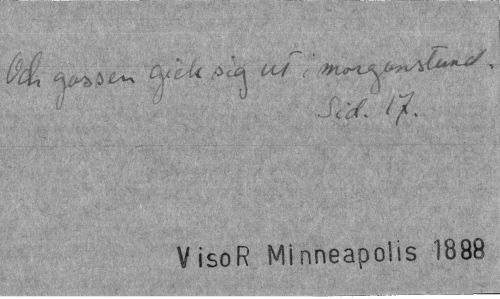 Och gossen gick sig ut i morgonstund.
Sid. 17.
VisoR Minneapolis 1888